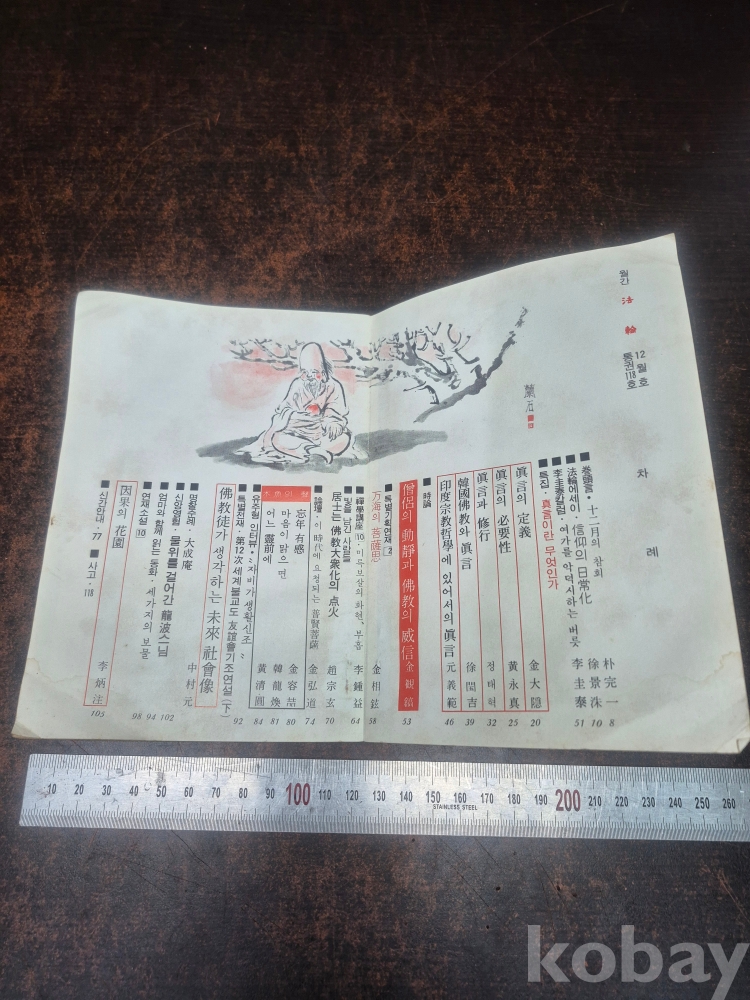 월간
法輪
12월호
통권118호
차례
■巻頭言·十二月의 참회 朴完一 8
■法輪에세이·信仰의 日常化 徐景洙 10
■李圭泰칼럼·여가를 악덕시하는 버릇 李圭泰 51
■특집·眞言이란 무엇인가
眞言의 定義 金大隱 20
眞言의 必要性 黃永真 25
眞言과 修行 정태혁 32
韓國佛教와 眞言 徐閏吉 39
印度宗教哲學에 있어서의 眞言 元義範 46
■時論
僧侶의 動靜과 佛教의 威信 金觀鎬 53
■특별기획연재 2
万海의 菩薩思 金相鉉 58
■禪學講座 10·미륵보살의 화현, 부흡 李鍾益 64
■빛을 남긴 사람들
居士는 佛教大衆化의 点火 趙宗玄 70
■論壇·이 時代에 요청되는 普賢菩薩 金弘道 74
忘年有感 金容喆 80
마음이 맑으면 韓龍煥 81
어느 靈前에 黃清圓 84
■유주형 인터뷰·
■특별전재·第12次세계불교도 友誼會기조연설(下) 92
佛教徒가 생각하는 未來 社會像 中村 元
■명찰순례·大成庵
■신앙영험·물위를 걸어간 龍波스님
■엄마와 함께 읽는 동화·세가지의 보물 102
■연재소설 10 94
98
因果의 花園 李炳注 105
■신간안내·77 ■사고·118
蘭石
10 20 30 40 50 60 70 80 90 100 110 120 130 140 150 160 170 180 190 200 210 220 230 240 250 260
STAINLESS STEEL
kobay